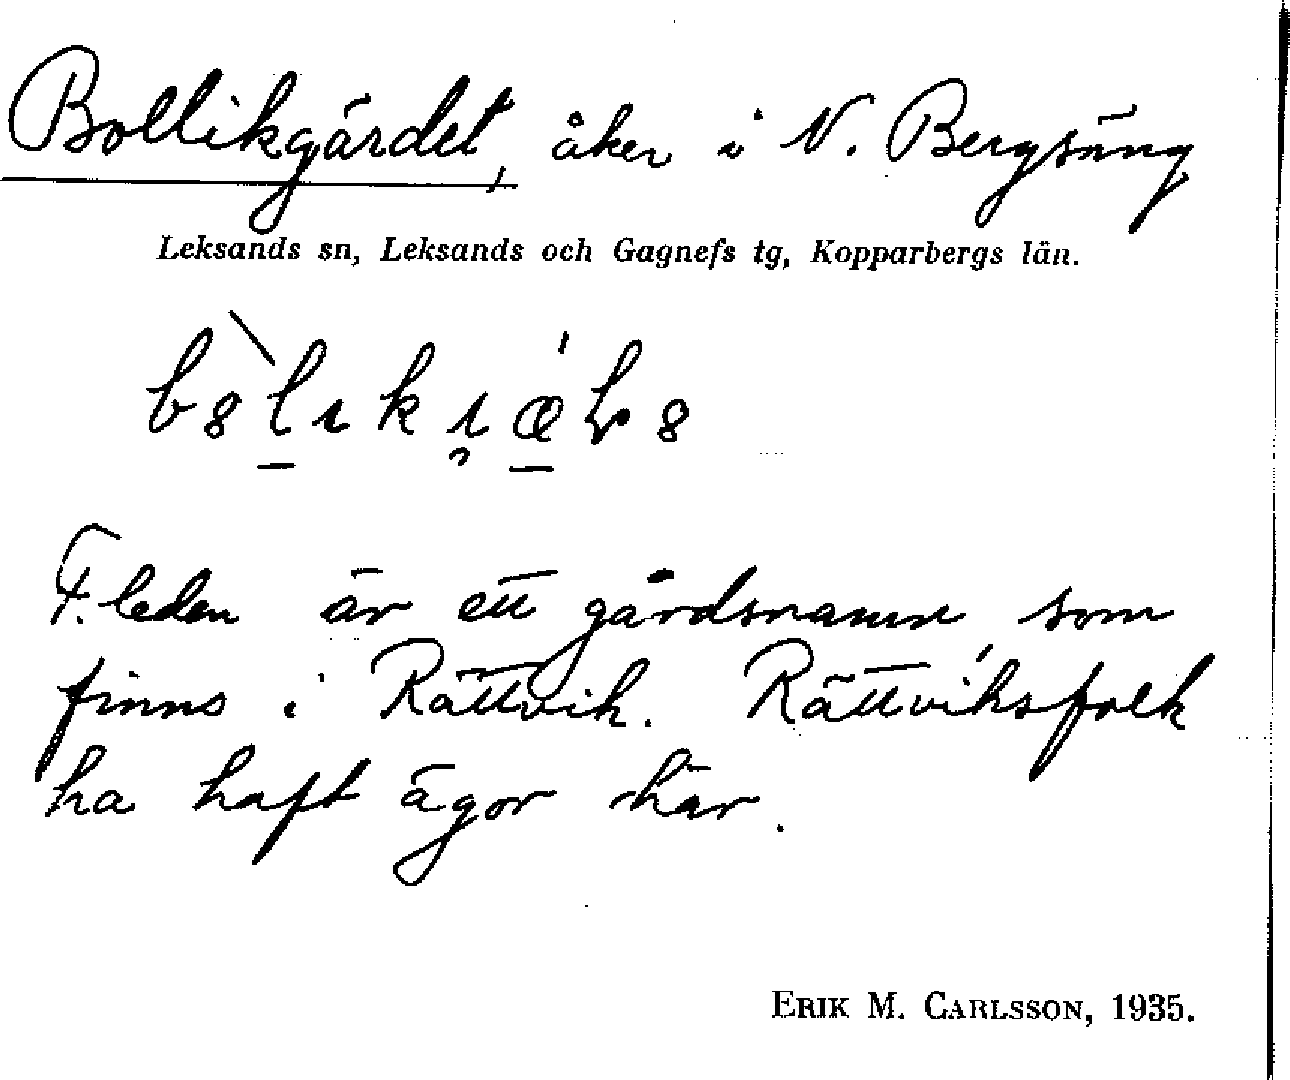 Bollikgärdet, åker i N. Bergsäng
Leksands sn, Leksands och Gagnefs tg, Kopparbergs län.
F. leden är ett gårdsnamn som
finns i Rättvik. Rättviksfolk
ha haft ägor här.
ERIK M. CARLSSON, 1935.